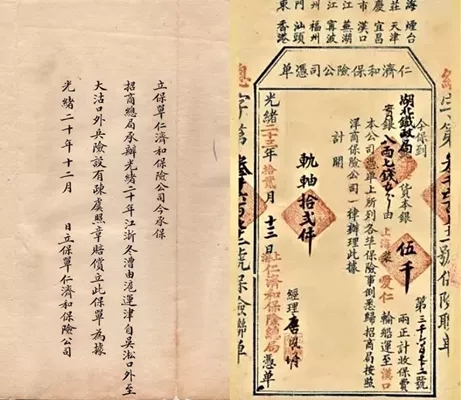 立保單仁濟和保險公司今承保
招商總局承辦光緒二十年江浙冬漕由滬運津自吳淞口外至
大沽口外兵險設有疎虞照章賠償立此保單為據
光緒二十年十二月 日立保單仁濟和保險公司
海煙台
莊天津
慶宜昌
市漢口
江蕪湖
江寧波
州福州
門汕頭
東香港
仁濟和保險公司憑單
今保到
湖北鐵政局 貨本銀伍千兩正計收保費
實銀八兩七錢 由上海裝愛仁輪船運至漢口
本公司憑單上所列各年保險事例悉歸招商局按照
洋商保險公司一律辦理此據
計開
軌軸拾弍件
光緒二十三年拾弍月十三
上海仁濟和保險總局憑單
經理唐鳳
號保險聯單